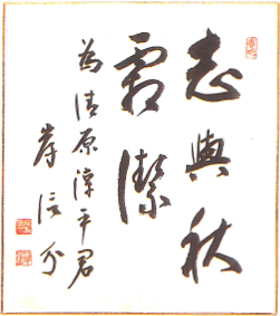 志與秋
霜潔
為清原淳平君
岸信介